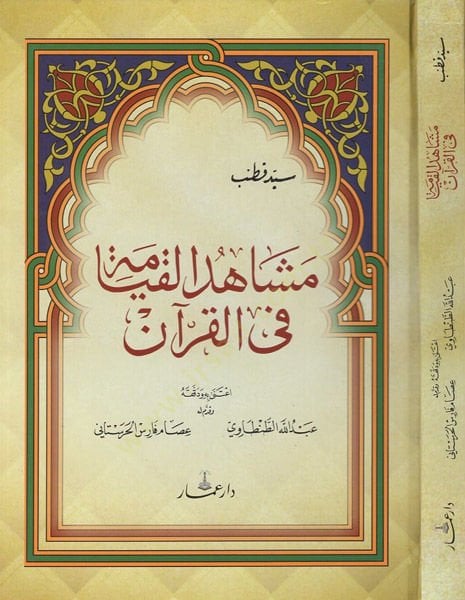 سيد قطب
مَشَاهدُ القيامة
في القرآن
اعتنى به ودققه
وقدم له
عبد الله الطنطاوي
عصام فارس الحرستاني
دار عمار
سيد قطب
مشاهد القيامة
في القرآن
اعتنى به ودققه وقدم له
عبد الله الطنطاوي
عصام فارس الحرستاني
دار عمار